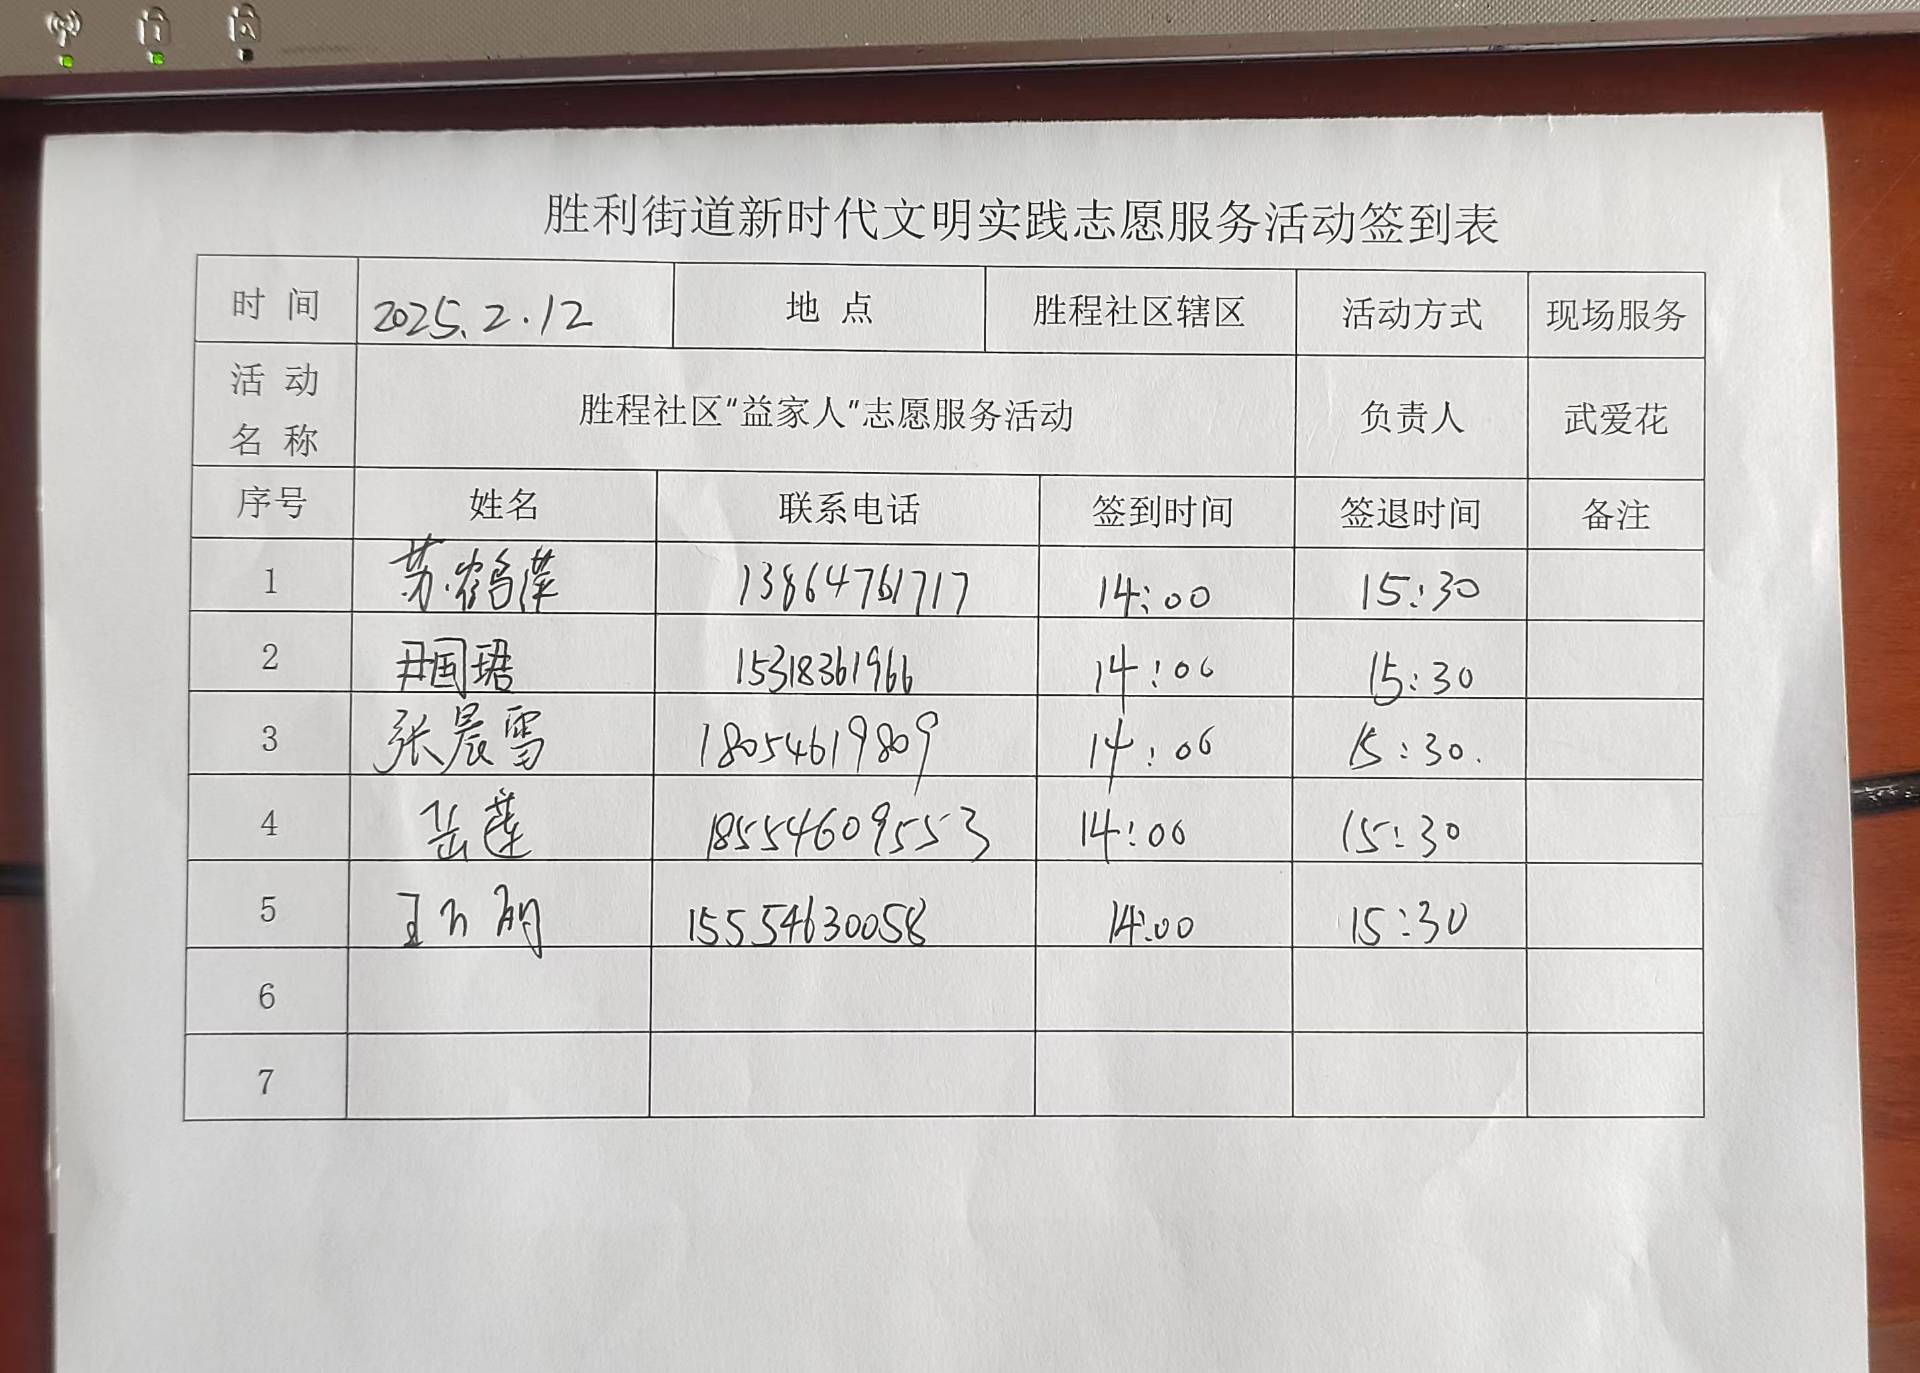 胜利街道新时代文明实践志愿服务活动签到表
时 间 2025.2.12 地 点 胜程社区辖区 活动方式 现场服务
活 动
名 称 胜程社区“益家人”志愿服务活动 负责人 武爱花
序号 姓名 联系电话 签到时间 签退时间 备注
1 苏鹤萍 13864761717 14:00 15:30
2 尹国珺 15318361966 14:00 15:30
3 张晨雪 18054619809 14:00 15:30.
4 岳莲 18554609553 14:00 15:30
5 15554630058 14:00 15:30
6
7